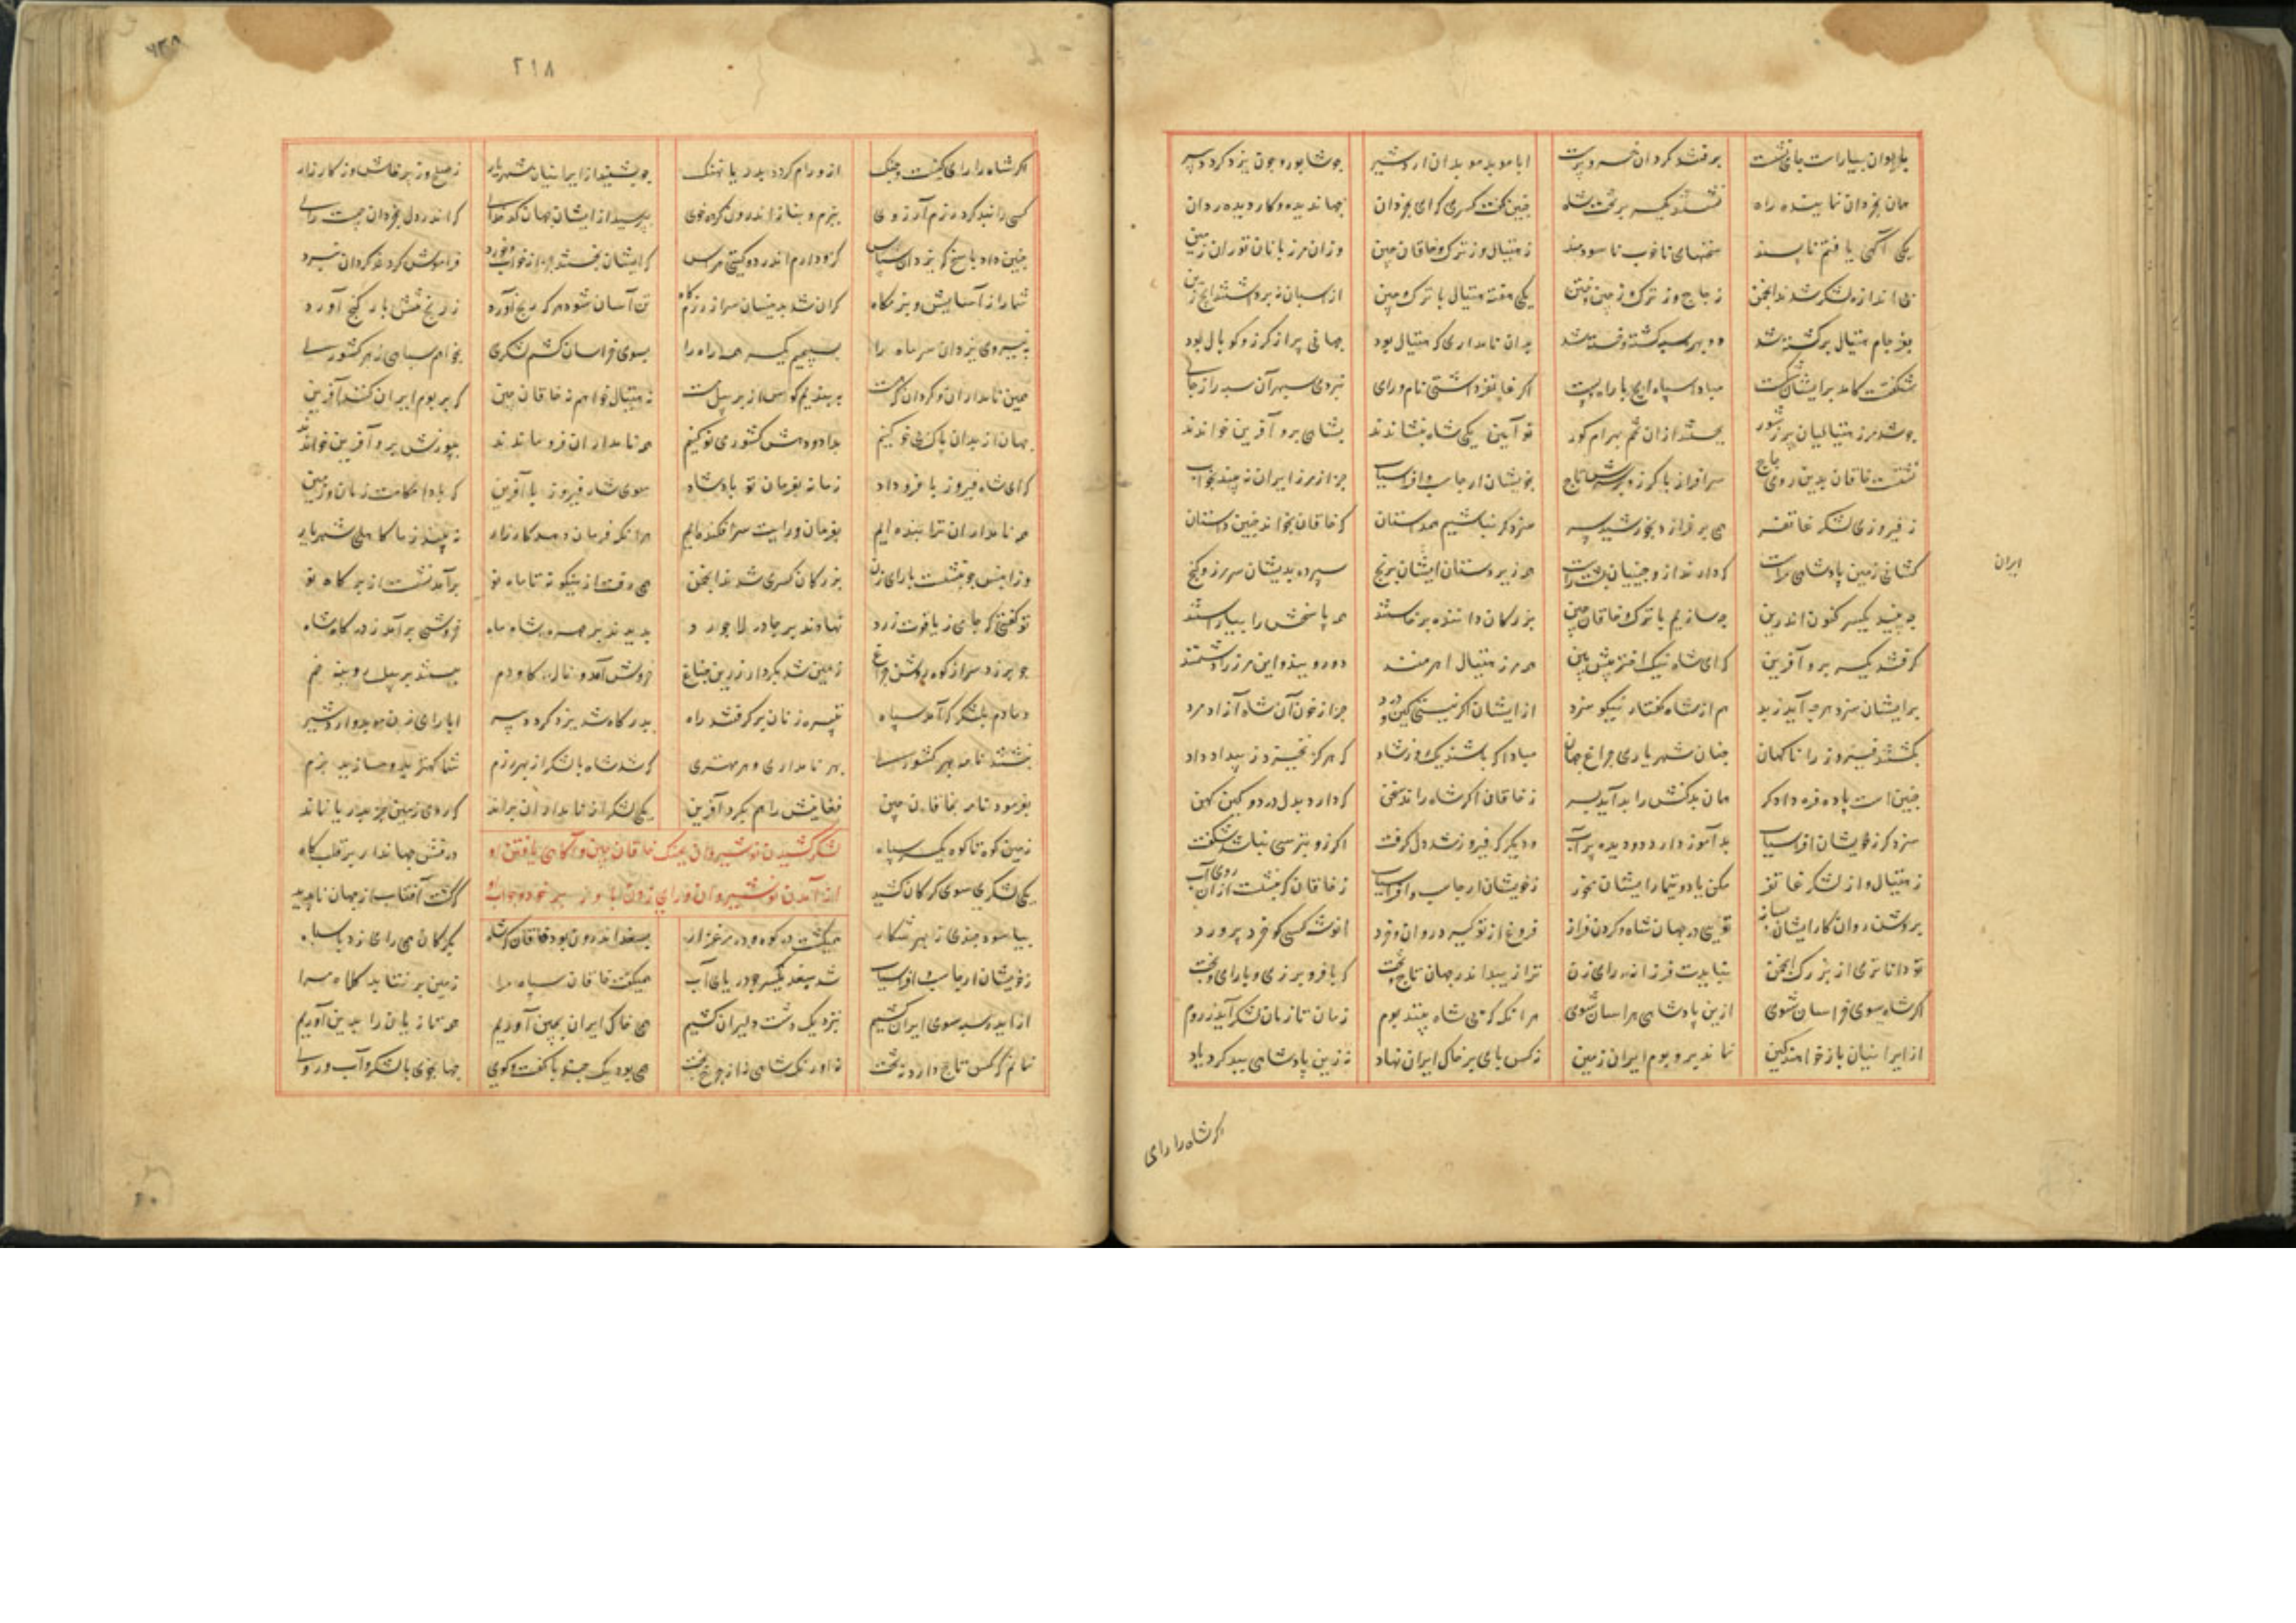 بایوان بیاراست جای نشست برفتند گردان خسروپرست ابا موبد موبدان اردشیر چو شاپور و چون یزدگرد دبیر
همان بخردان نماینده راه نشستند یکسر بر تخت شاه چنین گفت کسری که ای بخردان جهاندیده و کار دیده ردان
یکی آگهی یافتم ناپسند سخنهای ناخوب ناسودمند ز هیتال وز ترک و خاقان چین وزان مرزبانان توران زمین
بی اندازه لشکر شدند انجمن ز چاج و ز ترک و ز چین و ختن یکی هفته هیتال با ترک چین از اسبان نه برداشتند ایچ زین
بفرجام هیتال برگشته شد دو بهره سپه کشته و خسته شد بدان نامداری که هیتال بود جهانی پر از گرز و کوپال بود
شگفتست کامد برایشان شکست مباد سپاه ایچ با رای پست اگر غاتفر داشتی نام و رای نبردی سپهر آن سپه را ز جای
چو شد مرز هیتالیان پر ز شور بجستند از آن تخم بهرام گور نو آیین یکی شاه بنشاندند بشاهی برو آفرین خواندند
نشست خاقان بدین روی چاج سرافراز با گرز و برسرش تاج ز خویشان ارجاسپ و افراسیاب جز از مرز ایران نه بیند بخواب
ز فیروزی لشکر غاتفر همی برفرازد بخورشید سر سزد گر نباشیم همداستان که خاقان بخواند چنین داستان
کشانی زمین پادشاهی مراست که دارند ازو چینیان پشت راست همه زیردستان ایشان برنج سپرده بدیشان سر مرز و گنج
ایران
چه بینید یکسر کنون اندرین چه سازیم با ترک و خاقان چین بزرگان داننده برخاستند همه پاسخش را بیاراستند
گرفتند یکسر برو آفرین که ای شاه نیک اختر پیش بین همه مرز هیتال اهرمنند دورویند و این مرز را دشمنند
برایشان سزد هرچه آید ز بد هم از شاه گفتار نیکو سزد از ایشان اگر نیستی کین و درد جز از خون آن شاه آزادمرد
بکشتند فیروز را ناگهان چنان شهریاری چراغ جهان مبادا که باشند یک روز شاد که هرگز نخیزد ز بیداد داد
چنین است پادافره دادگر همان بدکنش را بد آید بسر ز خاقان اگر شاه راند سخن که دارد بدل درد و کین کهن
سزد کز خویشان افراسیاب بدآموز دارد دو دیده پرآب و دیگر که فیروز شد دل گرفت اگر زو بترسی نباشد شگفت
ز هیتال و از لشکر غاتفر مکن یاد و تیمار ایشان مخور ز خویشان ارجاسپ و افراسیاب ز خاقان که بنشست ازان روی آب
بروشن روان کار ایشان بساز تویی در جهان شاه گردن فراز فروغ از تو گیرد روان و خرد انوشه کسی کو خرد پرورد
تو داناتری از بزرگ انجمن نبایدت فرزانه و رای زن ترا زیبد اندر جهان تاج و تخت که با فر و برزی و با رای و بخت
اگر شاه سوی خراسان شوی ازین پادشاهی هراسان شوی هرآنکه که بی شاه بینند بوم زمان تا زمان لشکر آید ز روم
از ایرانیان باز خواهند کین نماند بر و بوم ایران زمین نه کس پای بر خاک ایران نهاد نه زین پادشاهی ببد کرد یاد
اگر شاه را رای
۲۱۸
اگر شاه را رای کینست و جنگ ازو رام گردد بدریا نهنگ چو بشنید از ایرانیان شهریار ز صلح وز پرخاش وز کارزار
کسی را نبد گرد رزم آرزوی ببزم و بناز اندرون کرده خوی بپرسید از ایشان جهان کدخدای که اندر دل بخردان چیست رای
چنین داد پاسخ که یزدان سپاس کزو دارم اندر دو گیتی هراس که ایشان نجستند جز از خواب و خورد فراموش کردند گردان نبرد
شما را از آسایش و بزمگاه گران شد بدینسان سر از رزمگاه تن آسان شود هرکه رنج آورد ز رنج تنش بار گنج آورد
به نیروی یزدان سر ماه را بسیچیم یکسر همه راه را بسوی خراسان کشم لشکری بخوام سپاهی ز هر کشوری
همین نامداران و گردان که هست ببندیم کوس از بر پیل مست نه هیتال خواهم نه خاقان چین که بر بوم ایران کنند آفرین
جهان از بدان پاک بی خو کنیم بداد و دهش کشوری نو کنیم همه نامداران فرو ماندند بپوزش برو آفرین خواندند
که ای شاه فیروز با فر و داد زمانه بفرمان تو باد شاد
همه نامداران ترا بنده ایم بفرمان و رایت سرافکنده ایم هرآنگه که فرمان دهد کارزار نه بیند ز ما کاهلی شهریار
وزانپس چو بنشست با رای زن بزرگان کسری شدند انجمن همی رفت ازینگونه تا ماه نو برآمد نشست از بر گاه نو
تو گفتی که جامی ز یاقوت زرد نهادند بر چادر لاجورد بدیدند بر چهره شاه ماه خروشی برآمد ز درگاه شاه
چو برزد سر از کوه روشن چراغ زمین شد بکردار زرین جناغ خروش آمد و ناله گاو دم ببستند بر پیل رویینه خم
دمادم بلشکر گه آمد سپاه تبیره زنان برگرفتند راه بدرگاه شد یزدگرد دبیر ابا رای زن موبد اردشیر
نبشتند نامه بهر کشوری بهر نامداری و هر مهتری که شد شاه با لشکر از بهر رزم شما کهتری را مسازید بزم
بفرمود نامه بخاقان چین فغانیش را هم بکرد آفرین یکی لشکر از نامداران براند که روی زمین جز بدریا نماند
زمین کوه تا کوه یکسر سپاه درفش جهاندار بر قلبگاه
لشکر کشیدن نوشیروان بجنگ خاقان چین و آگاهی یافتن او
یکی لشکری سوی گرگان کشید که گشت آفتاب از جهان ناپدید
از آمدن نوشیروان و رای زدن
بیاسود چندی ز بهر شکار همیگشت در کوه و در مرغزار بسغد اندرون بود خاقان که شاه بگرگان همی رای زد با سپاه
ز خویشان ارجاسپ و افراسیاب شد سغد یکسر چو دریای آب همیگفت خاقان سپاه مرا زمین برنتابد کلاه مرا
از ایدر سپه سوی ایران کشیم بنزدیک دشت دلیران کشیم همی خاک ایران بچین آوریم همه تازیان را بدین آوریم
نمانم که کس تاج دارد نه تخت نه اورنگ شاهی نه از چرخ بخت همی بود یک چند با گفت و گوی جهانجوی با لشکر و آب روی